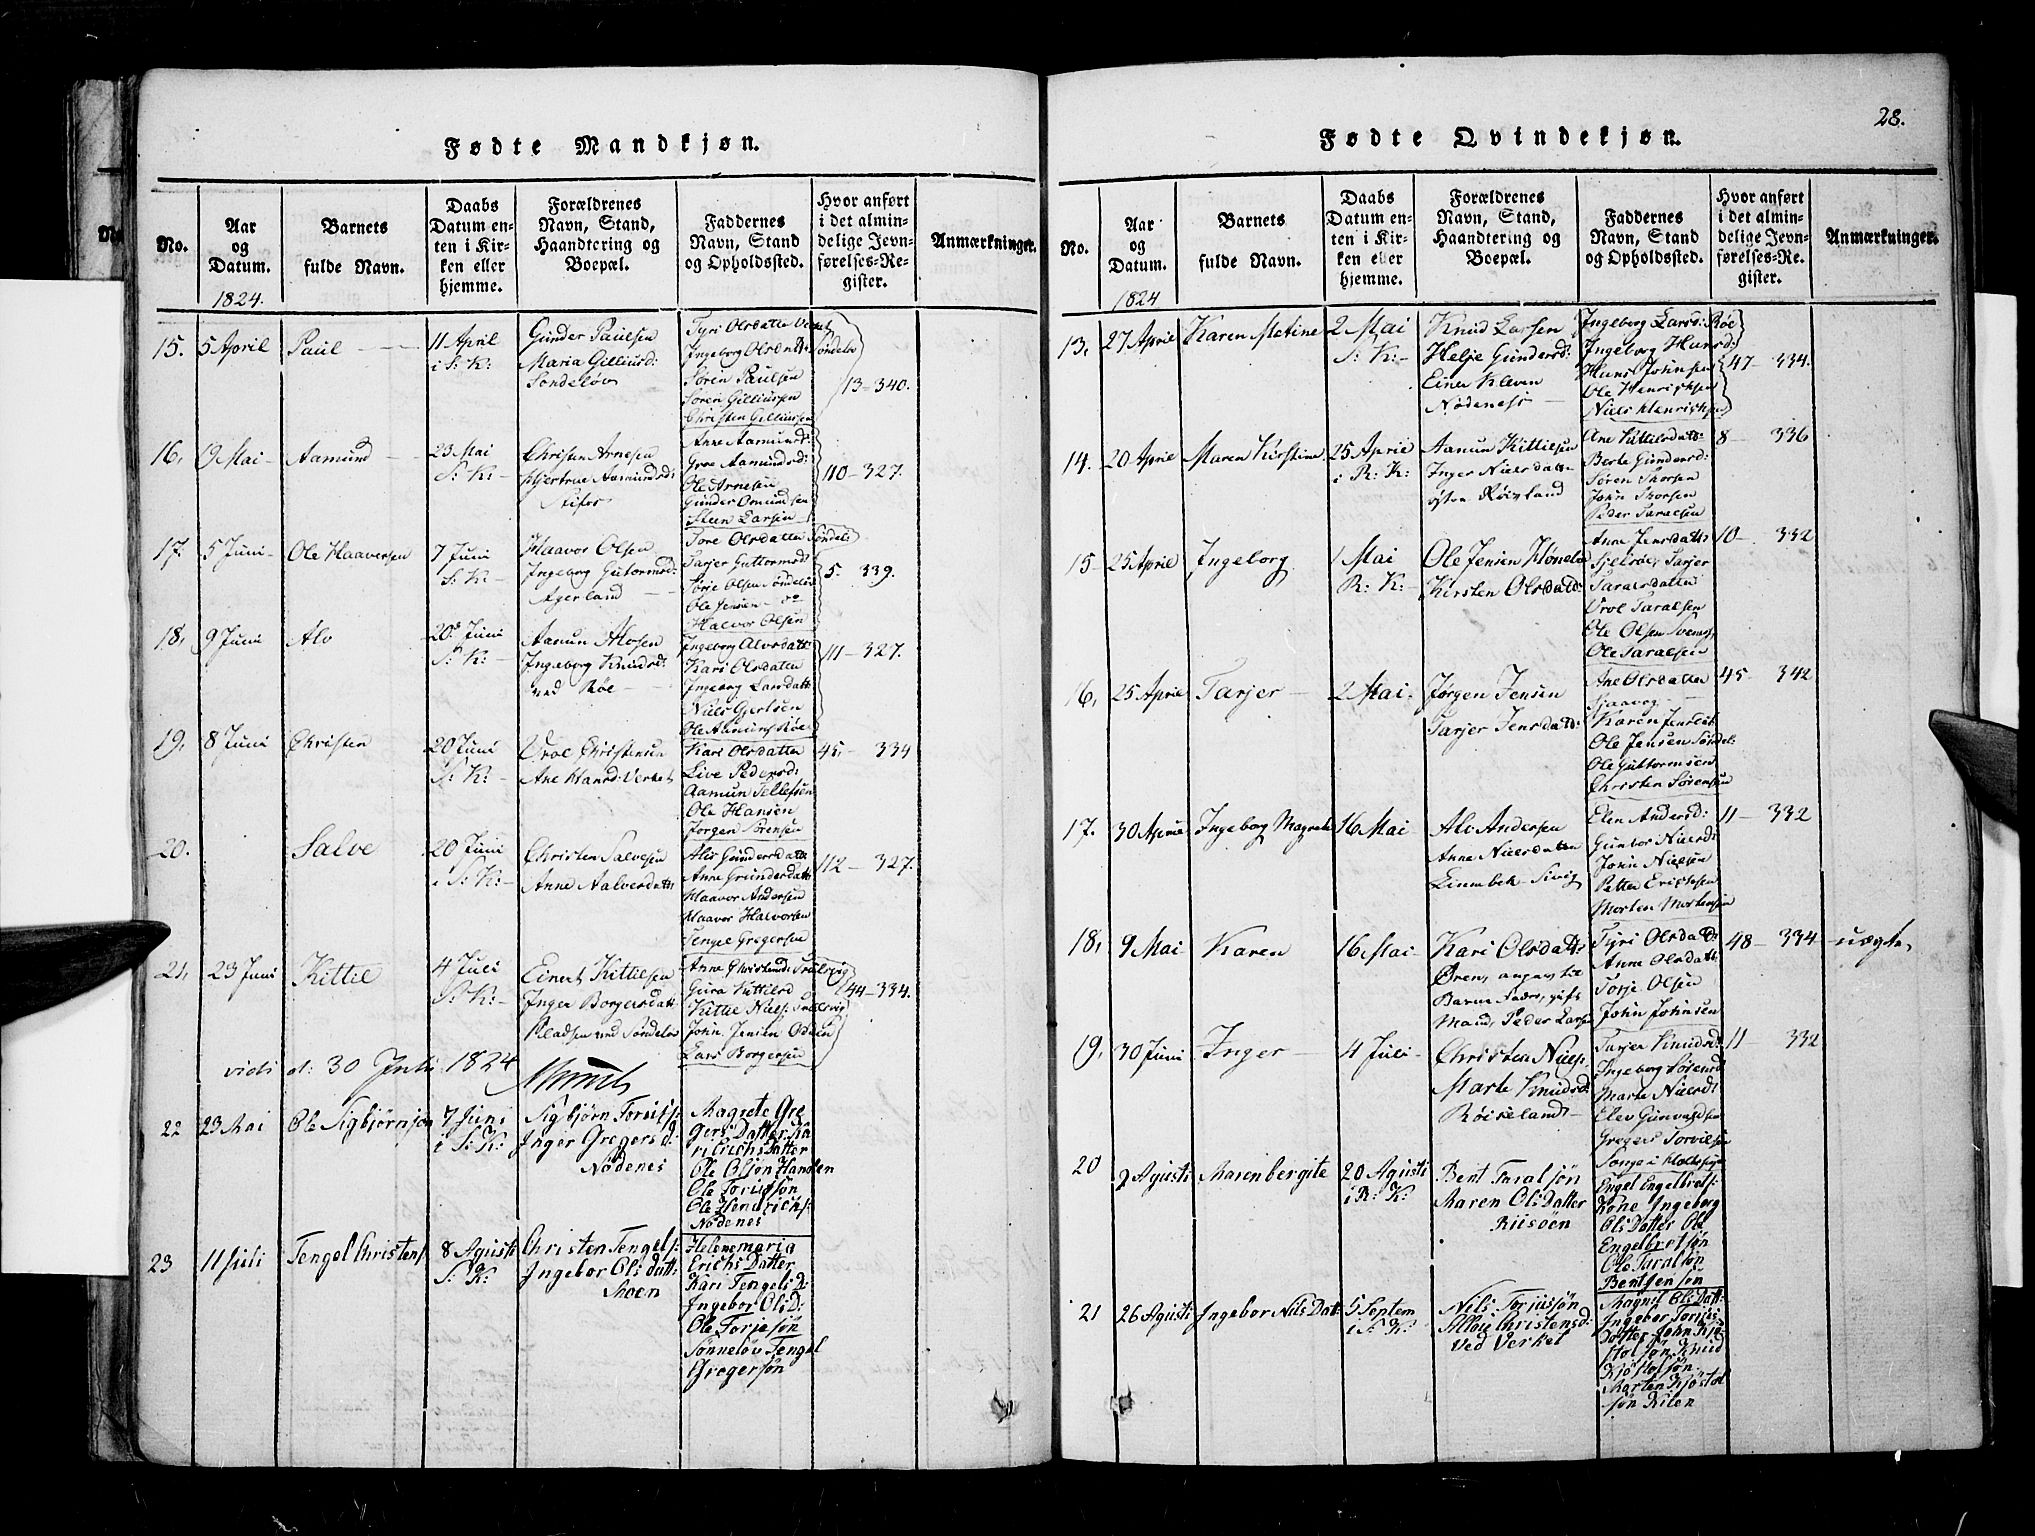 28.
Fødte Mandkjøn.
No.
Aar og Datum.
Barnets fulde Navn.
Daabs Datum enten i Kirken eller hjemme.
Forældrenes Navn, Stand, Haandtering og Boepæl.
Faddernes Navn, Stand og Opholdssted.
Hvor anført i det almindelige Jevnførelses-Register.
Anmærkninger.
1824.
15. 5 April Paul
11 April
i S: K:
Gunder Paulsen
Maria Gilliusd:
Sondeløv
Tyri Olsdatter
Ingeborg Olsdatter
Sören Paulsen
Sören Gilliussen
Christen Gilliussen
13 - 340.
16. 9 Mai Aamund
23 Mai
S: K:
Christen Arnesen
Gjertrue Aamundsd:
Anne Aamundsd:
Groe Aamundsd:
Ole Arnesen
Gunder Omundsen
Steen Larsen
110 - 327.
17. 5 Juni Ole Haaversen
7 Juni
S: K:
Haavor Olsen
Ingeborg Gutormsd:
Agerland
Tore Olsdatter
Tarjer Guttormsd:
Terje Olsen Søndeløv
Ole Jensen
Halvor Olsen
5. 339.
18. 9 Juni Alv
20 Juni
S: K:
Aamun Alvsen
Ingeborg Knudsd:
ved Røe
Ingeborg Alvsdatt:
Kari Olsdatter
Ingeborg Larsdatt:
Niels Gjertsen
Ole Aamunds Røe
111 - 327.
19. 8 Juni Christen
20 Juni
S: K:
Vroe Christensen
Ane Hansd: Verket
Kari Olsdatter
Live Pedersd:
Aamun Tellefsen
Ole Hansen
Jørgen Sørensen
45. - 334
20. Salve
20 Juni
i S: K:
Christen Salvesen
Anne Aalversdatt:
Alis Gundersdatt:
Anne Gundersdatt:
Haavor Andersen
Haavor Halvorsen
Tengel Gregersen
112 - 327.
21. 23 Juni Kittil
4 Juli
S: K:
Einert Kittilsen
Inger Borgersdatt:
Pladsen ved Søndeløv
Anne Christensd:
Gura Kittilsd
Kittil Niels:
John Jensen
Lars Borgersen
44 - 334.
vidi d: 30 Juli 1824
22 23 Mai Ole Sigbjørnsøn
7 Juni
i S: K:
Sigbjørn Torjus:
Inger Gregers d:
Nødenes
Magrete Gre
gers Datter Ka
ri Erichs Datter
Ole Olsøn Hansen
Ole Torjussøn
Ole Hendrichs:
Nødenes
23 11 Juli Tengel Christens:
8 Agusti
S: K:
Christen Tengels:
Ingebor Ols datt:
Moen
Helenemaria
Erichs Datter
Kari Tengels d:
Ingebor Ols D:
Ole Torjesøn
Sønneløv Tengel
Gregersøn
Fødte Qvindekjøn.
No.
Aar og Datum.
Barnets fulde Navn.
Daabs Datum enten i Kirken eller hjemme.
Forældrenes Navn, Stand, Haandtering og Boepæl.
Faddernes Navn, Stand og Opholdssted.
Hvor anført i det almindelige Jevnførelses-Register.
Anmærkninger.
1824
13. 27 April Karen Matine
2 Mai
S: K:
Knud Larsen
Helje Gundersd:
Einer Kleven
Nødenes
Ingeborg Larsd: Røe
Ingeborg Hansd:
Hans Johnsen
Ole Henrichsen
Niels Henrichsen
47 - 334.
14. 20 April Maren Kirstine
25 April
i R: K:
Aanun Kittilsen
Inger Nielsdatter
østen Röisland
Ane Kittilsdatt:
Berte Gundersd:
Sören Thorsen
John Thorsen
Peder Taralsen
8 - 336
15 25 April Ingeborg
1 Mai
R: K:
Ole Jensen
Kirsten Olsdatt:
Anne Jensdatt:
Taralsdatter
Vrol Taralsen
Ole Olsen
Ole Taralsen
10 - 332
16. 25 April Tarjer
2 Mai
Jørgen Jensen
Tarjer Jensdatt:
Ane Olsdatter
Sjaavog
Karen Jensdat
Ole Jensen Søndel:
Ole Guttormsen
Christen Sørensen
45 - 342
17. 30 April Ingeborg Magrete
16 Mai
Alv Andersen
Anne Nielsdatter
Elen Andersd:
Gunbor Nielsd:
John Nielsen
Petter Erichsen
Morten Mortensen
11 - 332
18. 9 Mai Karen
16 Mai
Kari Olsdatt:
Ören, angav til
Barne Fader, gift
Mand, Peder Larsen
Tyri Olsdatt:
Anne Olsdatt:
Torje Olsen
John Johnsen
48 - 334 uægte,
19. 30 Juni Inger
4 Juli
Christen Niels:
Marte Knudsd:
Röiseland
Tarjer Knudsd:
Ingeborg Sørensd:
Marte Nielsd:
Elev Gunvaldsen
Gregers Torvilsen
Songe i Holt
11 332
20 2 Agusti Maren bergite
20 Agusti
i R: K:
Bent Taralsjøn
Maren Ols Datter
Riisøen
Engel Engelbrets:
Kone Ingeborg
Ols Datter Ole
Engelbretsøn
Ole Taralsøn
Bentsen søn
21 26 Agusti Ingebor Nils Datt:
5 Septem
i S: K:
Nils Torjussøn
Christensd:
Ved Verket
Magnil Ols Datt:
Ingebor Torjus
Datter John Kjø
stolsøn Knud
Kjøstolsøn
Morten Kjøstol
søn Kilen